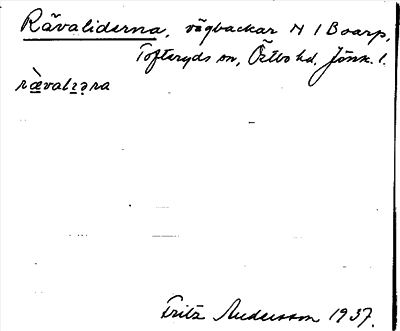 Rävaliderna, vägbackar N i Boarp,
Tofteryds sn, Östbo hd. Jönk. l.
ræ̀valɪəra
Fritz Andersson 1937.